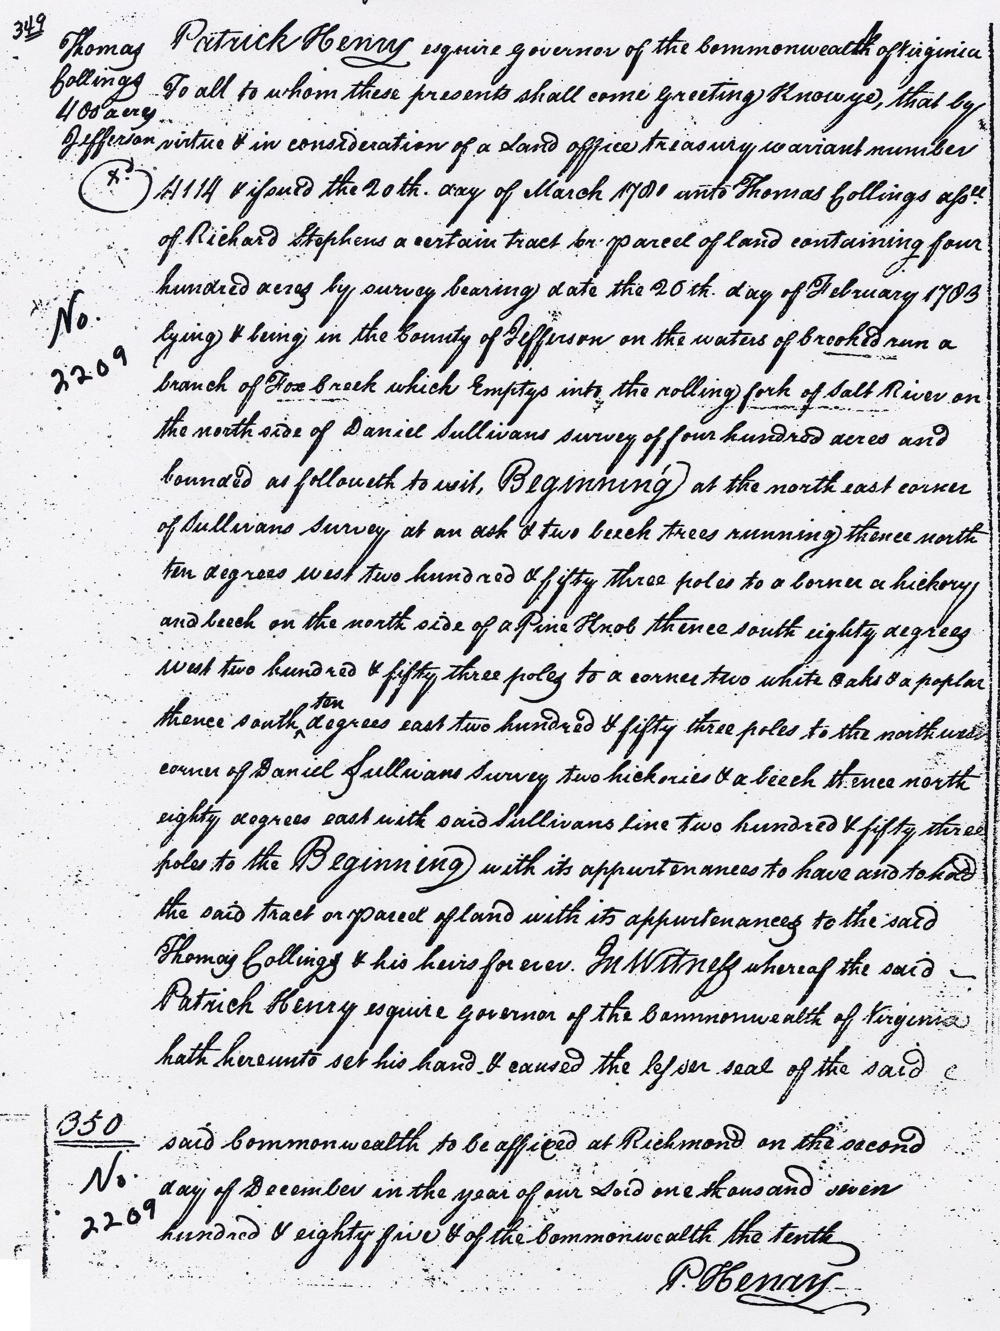 349
Thomas
Collings
400 acres
Jefferson
Xd
No.
2209
Patrick Henry esquire governor of the Commonwealth of Virginia
To all to whom these presents shall come Greeting Know ye, that by
virtue & in consideration of a Land office treasury warrant number
4114 & issued the 20th. day of March 1781 unto Thomas Collings assee
of Richard Stephens a certain tract or parcel of land containing four
hundred acres by survey bearing date the 20th. day of February 1783
lying & being in the County of Jefferson on the waters of Crooked run a
branch of Fox Creek which Emptys into the rolling fork of Salt River on
the north side of Daniel Sullivans survey of four hundred acres and
bounded as followeth to wit, Beginning at the north east corner
of Sullivans Survey at an ash & two beech trees running thence north
ten degrees west two hundred & fifty three poles to a Corner a hickory
and beech on the north side of a Pine Knob thence south eighty degrees
west two hundred & fifty three poles to a corner two white oaks & a poplar
thence south ten degrees east two hundred & fifty three poles to the north west
corner of Daniel Sullivans Survey two hickories & a beech thence north
eighty degrees east with said Sullivans Line two hundred & fifty three
poles to the Beginning with its appurtenances to have and to hold
the said tract or parcel of land with its appurtenances to the said
Thomas Collings & his heirs forever. In Witness whereof the said
Patrick Henry esquire Governor of the Commonwealth of Virginia
hath hereunto set his hand & caused the lesser seal of the said
350
No.
2209
said Commonwealth to be affixed at Richmond on the second
day of December in the year of our Lord one thousand seven
hundred & eighty five & of the Commonwealth the tenth
P. Henry